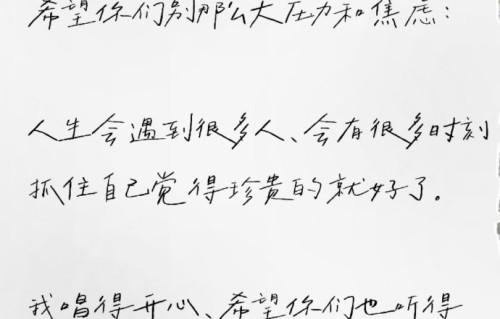 希望你们别那么大压力和焦虑:
人生会遇到很多人、会有很多时刻
抓住自己觉得珍贵的就好了。
我唱得开心、希望你们也听得